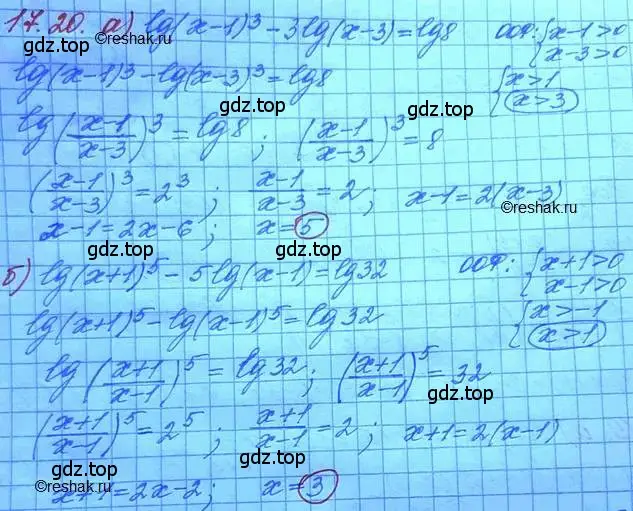 17.20. а) lg(x-1)³ - 3lg(x-3) = lg8 ООФ: {x-1>0
©reshak.ru x-3>0
lg(x-1)³ - lg(x-3)³ = lg8 {x>1
gdz.top gdz.top x>3
lg((x-1)/(x-3))³ = lg8; ((x-1)/(x-3))³ = 8
gdz.top
((x-1)/(x-3))³ = 2³; (x-1)/(x-3) = 2; x-1=2(x-3)
©reshak.ru
x-1=2x-6; x=5
gdz.top gdz.top
б) lg(x+1)⁵ - 5lg(x-1) = lg32 ООФ: {x+1>0
x-1>0
lg(x+1)⁵ - lg(x-1)⁵ = lg32 {x>-1
gdz.top x>1
©reshak.ru
lg((x+1)/(x-1))⁵ = lg32; ((x+1)/(x-1))⁵ = 32
gdz.top
((x+1)/(x-1))⁵ = 2⁵; (x+1)/(x-1) = 2; x+1=2(x-1)
gdz.top gdz.top
©reshak.ru
x+1=2x-2; x=3